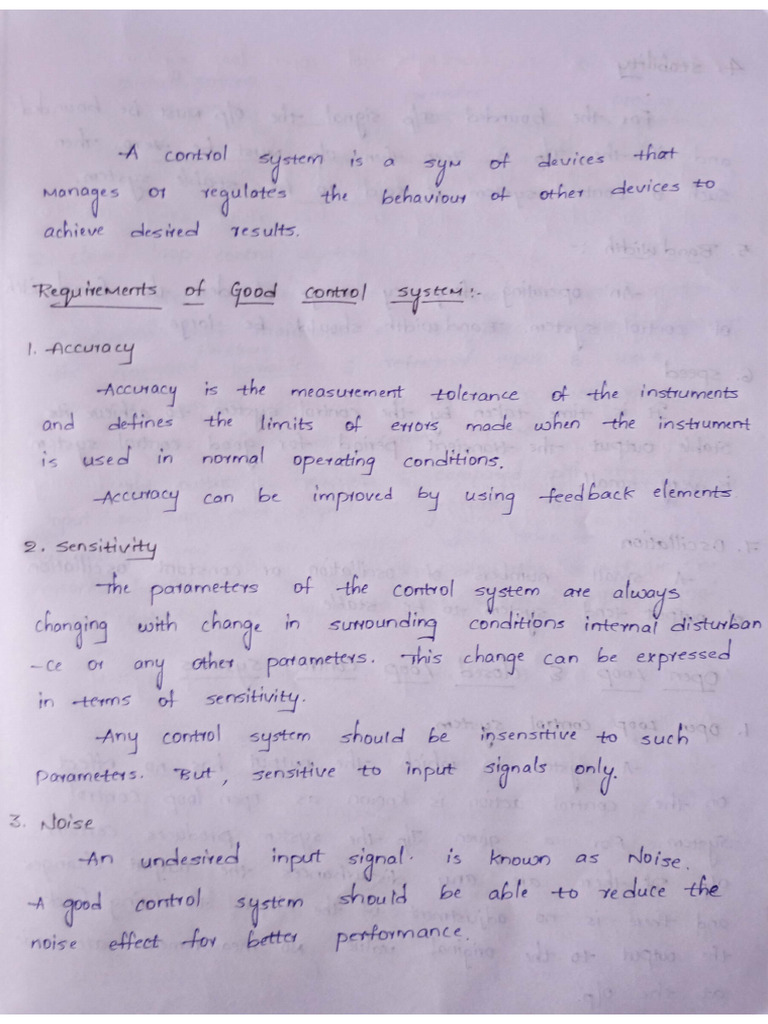 A control system is a sym of devices that
Manages or regulates the behaviour of other devices to
achieve desired results.
Requirements of Good control system:-
1. Accuracy
Accuracy is the measurement tolerance of the instruments
and defines the limits of errors made when the instrument
is used in normal operating conditions.
Accuracy can be improved by using feedback elements
2. Sensitivity
The parameters of the control system are always
changing with change in surrounding conditions internal disturban
-ce or any other parameters. This change can be expressed
in terms of sensitivity.
Any control system should be insensitive to such
Parameters. But, sensitive to input signals only.
3. Noise
An undesired input signal. is known as Noise.
A good control system should be able to reduce the
noise effect for better performance.